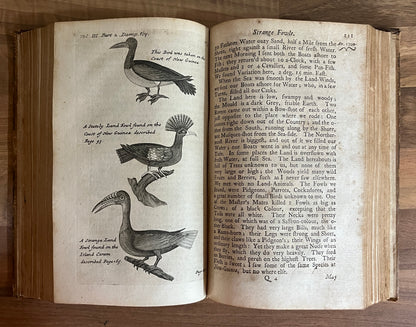 Vol. III Part 2. Dampr. Voy.
This Bird was taken on
Coast of New Guinea
A Stately Land
Fowl found on the
Coast of New Guinea
described
Page 95
A Strange Land
Fowl found on the
Island Ceram
described Page 165
Strange Fowls. 231
20 Fathom Water oazy Sand, half a Mile from the
Shore, right against a small River of fresh Water.
The next Morning I sent both the Boats ashore to
Fish; they return'd about 10 a-Clock, with a few
Mullets and 3 or 4 Cavallies, and some Pan-Fish.
We found Variation here, 2 deg. 15 min. East.
When the Sea was smooth by the Land-Winds,
we sent our Boats ashore for Water; who, in a few
Turns, filled all our Casks.
The Land here is low, swampy and woody;
the Mould is a dark Grey, friable Earth. Two
Rivers came out within a Bow-shot of each other,
just opposite to the place where we rode: One
comes right down out of the Country; and the
from the South, running along by the Shore,
not Musquet-shot from the Sea-side. The Norther-
most River is biggest, and out of it we filled our
Water; our Boats went in and out at any time of
Tide. In some places the Land is overflown with
fresh Water, at full Sea. The Land hereabouts is
full of Trees unknown to us, but none of them
very large or high; the Woods yield many wild
Fruits and Berries, such as I never saw elsewhere.
We met with no Land-Animals. The Fowls we
found, were Pidgeons, Parrots, Cockadores, and
a great number of small Birds unknown to me. One
of the Master's Mates killed 2 Fowls as big as
Crows; of a black Colour, excepting that the
Tails were all white. Their Necks were pretty
long, one of which was of a Saffron-colour, the
black. They had very large Bills, much like
a Rams-horn; their Legs were strong and short,
and their claws like a Pidgeon's; their Wings of an
ordinary length: Yet they make a great Noise when
they fly, which they do very heavily. They feed
on Berries, and perch on the highest Trees. Their
I saw some of the same Species at
New-Guinea, but no where else.
Q 4 May